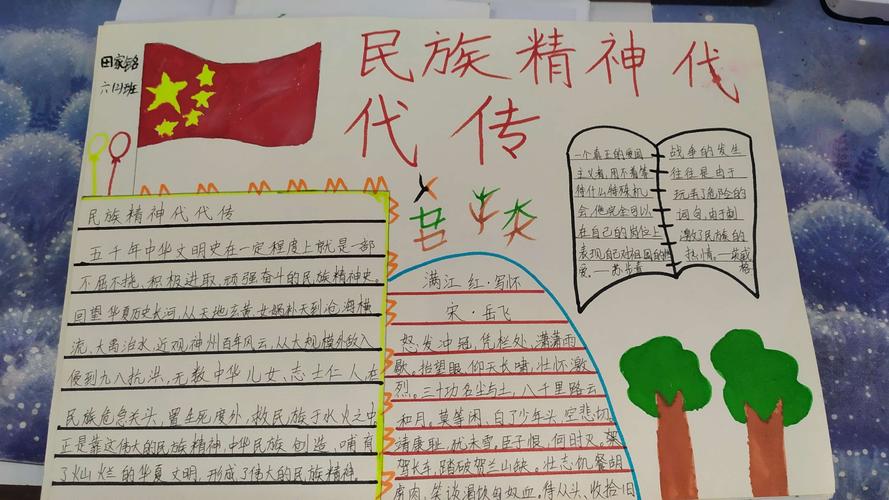 六(2)班
民族精神代
代传
民族精神代代传
五千年中华文明史在一定程度上就是一部
不屈不挠、积极进取、顽强奋斗的民族精神史。
回望华夏历史长河,从天地玄黄、女娲补天到沧海横
流、大禹治水,近观神州百年风云,从大规模外敌入
侵到九八抗洪,无数中华儿女、志士仁人在
民族危急关头,置生死度外,救民族于水火之中
正是靠这伟大的民族精神,中华民族创造、哺育
了灿烂的华夏文明,形成了伟大的民族精神。
满江红·写怀
宋·岳飞
怒发冲冠,凭栏处、潇潇雨
歇。抬望眼,仰天长啸,壮怀激
烈。三十功名尘与土,八千里路云
和月。莫等闲、白了少年头,空悲切。
靖康耻,犹未雪。臣子恨,何时灭。
驾长车,踏破贺兰山缺。壮志饥餐胡
虏肉,笑谈渴饮匈奴血。待从头、收拾旧
一个真正的爱国
主义者,用不着等
待什么特殊机
会,他完全可以
在自己的岗位上
表现自己对祖国的热
爱。——苏步青
战争的发生
往往是由于
玩弄了危险的
词句,由于刺
激了民族的
热情。——英